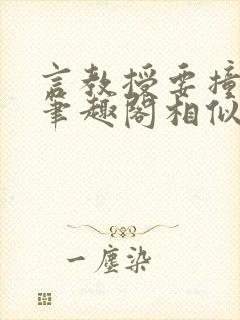 言教授要撞
笔趣阁相似
一尘染